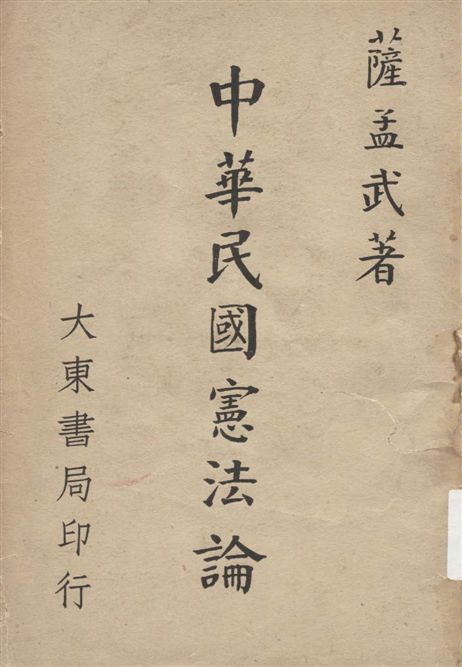 薩孟武著
中華民國憲法論
大東書局印行